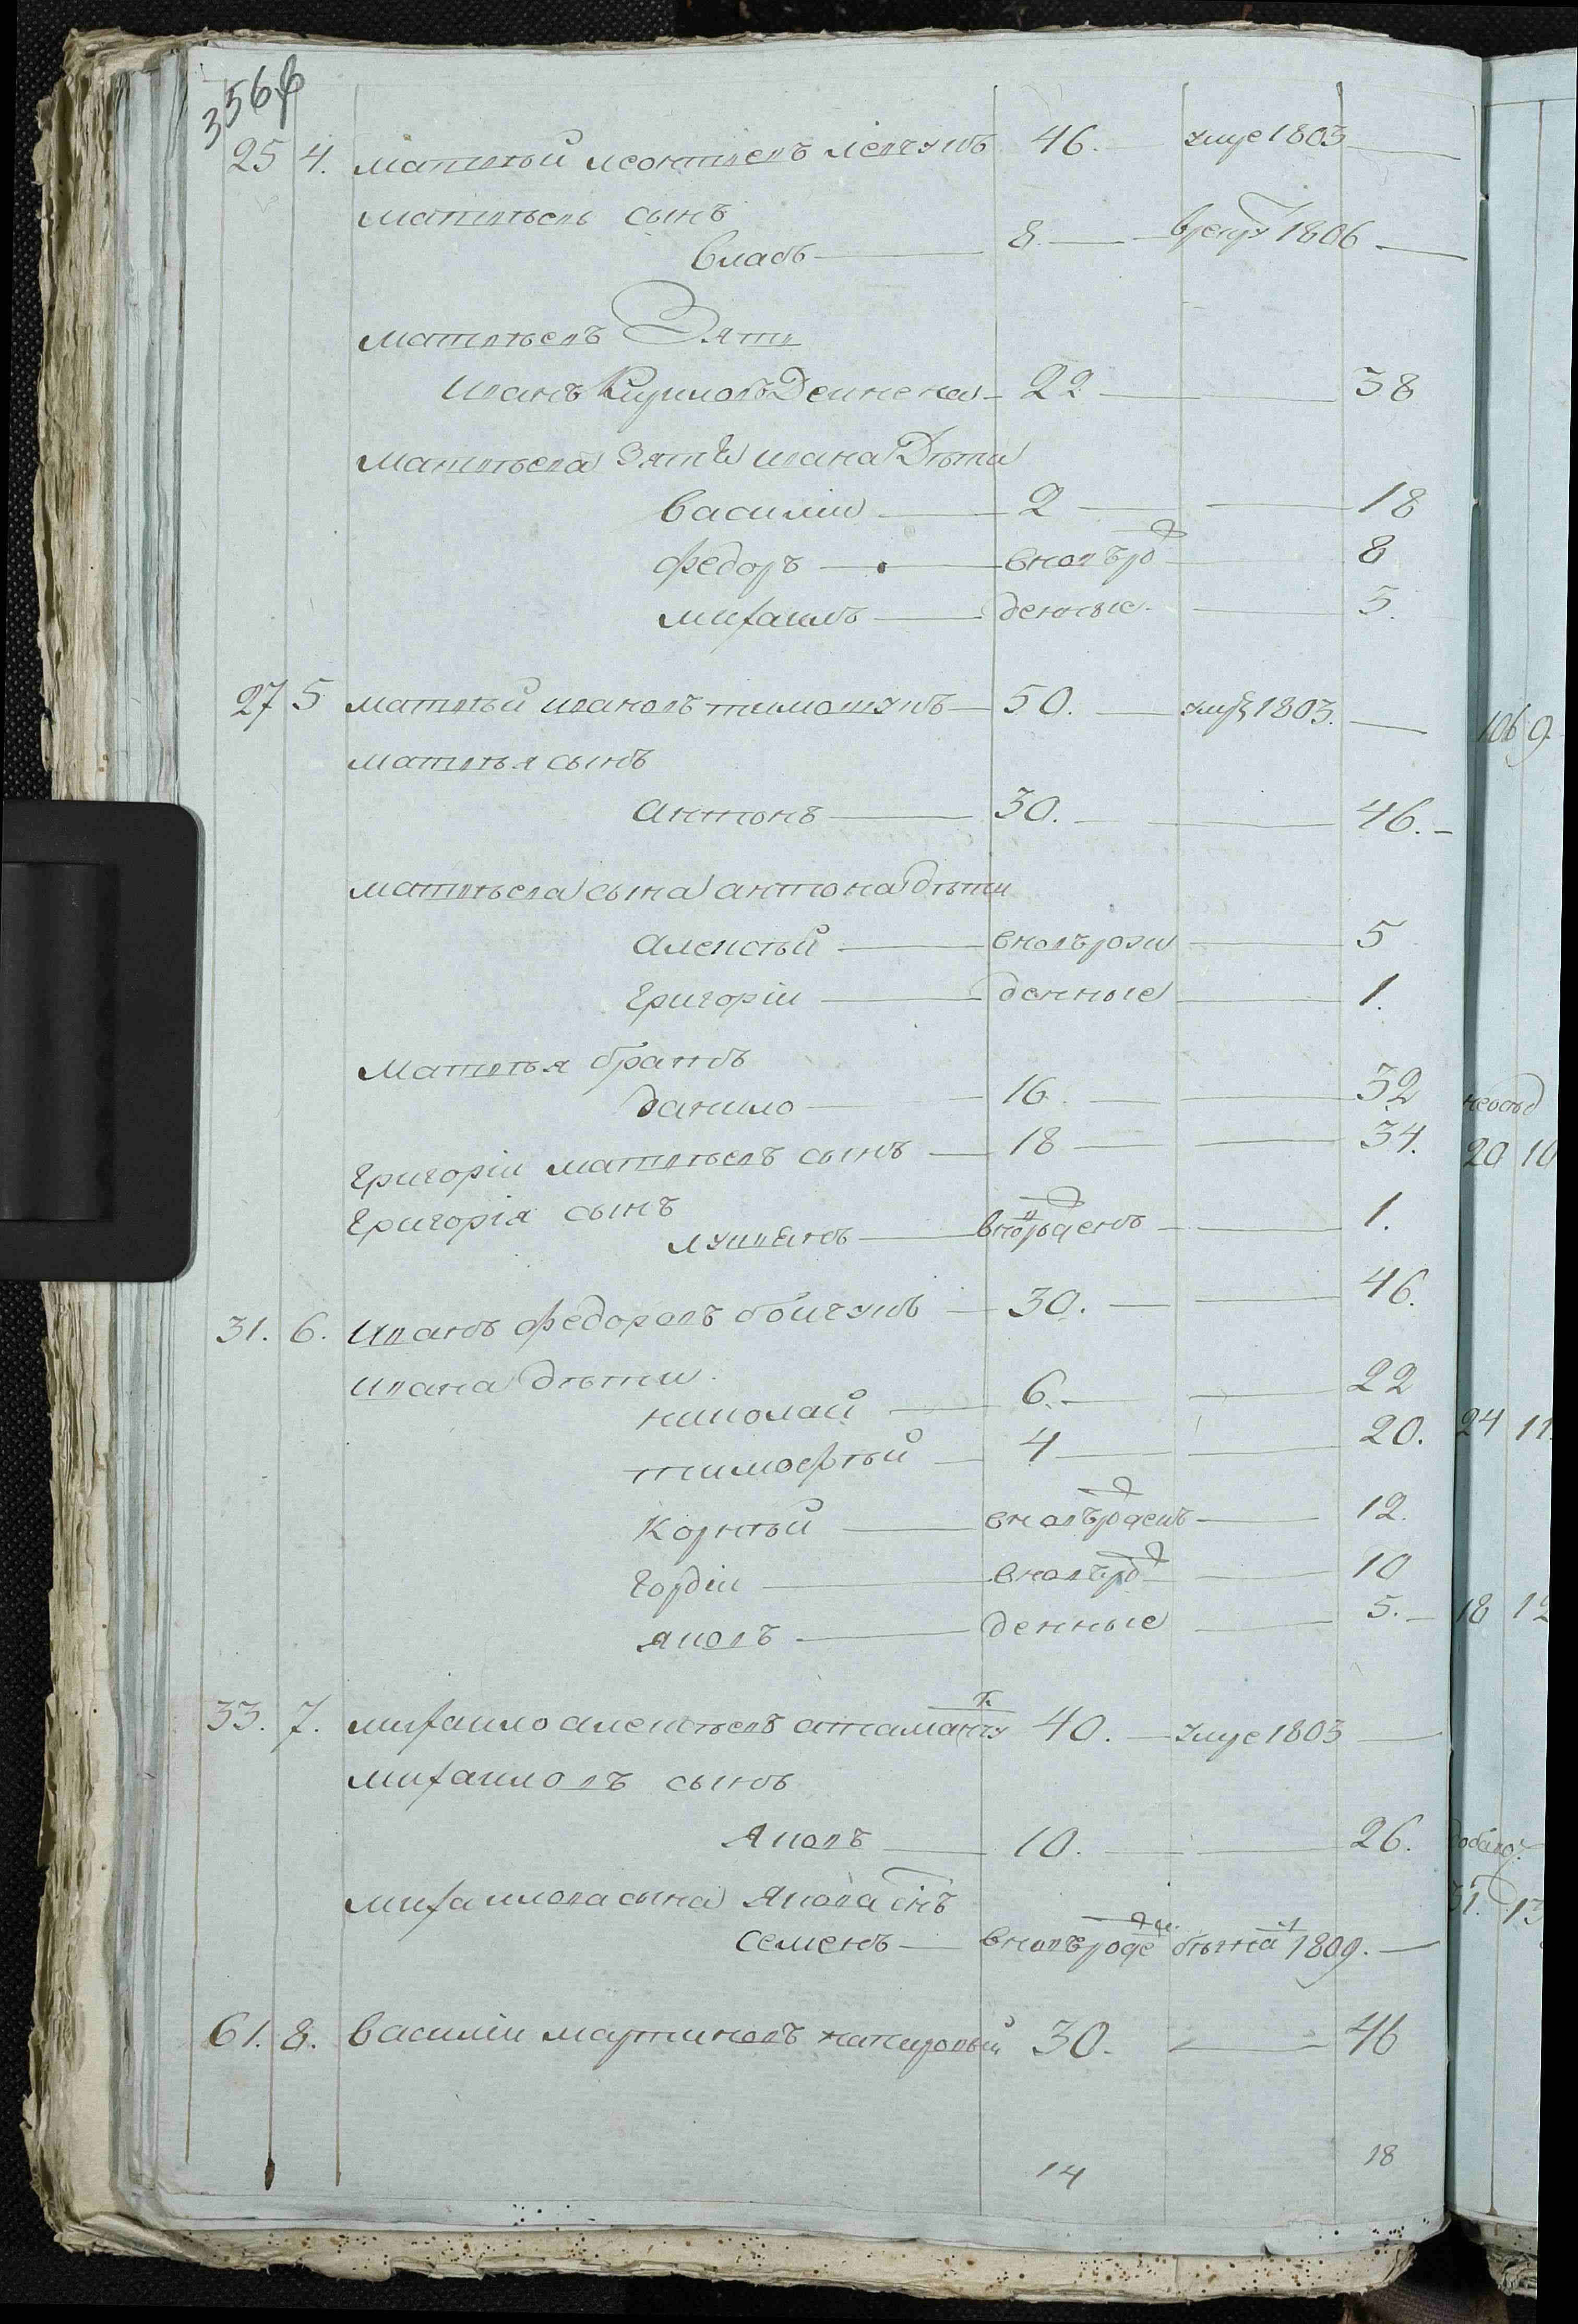 356
25 4. матвѣй леонтиевъ левчукъ 46. умре 1803
матвѣевъ сынъ
Власъ 8. врекрут 1806
матвѣевъ Зять
иванъ Кирилов Деинека 22 38
матвѣева Зятя ивана Дѣти
Василии 2 18
федоръ вновърож 8
михаилъ денные 5.
27 5 матвѣй ивановъ тимошукъ 50. умре 1803.
матвѣя сынъ
Антонъ 30. 46.
матвѣева сына антона дѣти
Алексѣй вновърож 5
Григоріи денные 1.
Матвѣя братъ
данило 16. 32
Григоріи матвѣевъ сынъ 18 34.
Григорія сынъ
лукянъ вноврожденъ 1.
31. 6. Иванъ федоровъ боичукъ 30. 46.
Ивана дѣти
николай 6. 22
тимофѣй 4 20.
Корнѣй вновърожденъ 12.
Гордіи вновърож 10
яковъ денные 5.
33. 7. михаило алексѣевъ атаманчук 40. умре 1803
михаиловъ сынъ
Яковъ 10. 26.
михаилова сына Якова снъ
Семенъ вновърожде бѣжал 1809.
61. 8. Василіи мартиновъ 30. 46
14 18
106 9
20 10
24 11.
18 12
31. 13